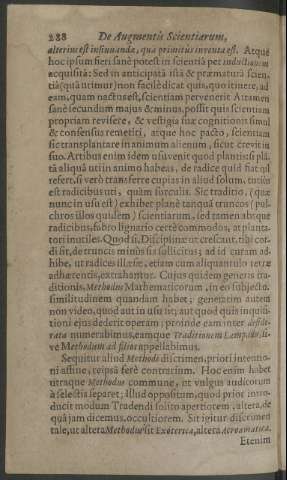 288 De Augmentis Scientiarum,
alterim est insinuanda, quâ primitùs inventa est. Atque
hoc ipsum fieri sanè potest in scientiâ per inductionem
acquisitâ: Sed in anticipatâ istâ & præmaturâ scien-
tiâ (quâ utimur) non facilè dicat quis, quo itinere, ad
eam, quam nactus est, scientiam pervenerit. Attamen
sanè secundum majus & minus, possit quis scientiam
propriam revisere, & vestigia suæ cognitionis simul
& consensûs remetiri, atque hoc pacto, scientiam
sic transplantare in animum alienum, sicut crevit in
suo. Artibus enim idem usuvenit quod plantis: si plâ-
tâ aliquâ uti in animo habeas, de radice quid fiat nil
refert, si verò transferre cupias in aliud solum, tutiùs
est radicibus uti, quàm surculis. Sic traditio, (quæ
nunc in usu est) exhibet planè tanquã truncos (pul-
chros illos quidem) scientiarum, sed tamen absque
radicibus, fabro lignario certè commodos, at planta-
tori inutiles. Quod si, Disciplinæ ut crescant, tibi cor-
di sit, de truncis minùs sis sollicitus; ad id curam ad-
hibe, ut radices illæsæ, etiam cum aliquantulo terræ
adhærentis, extrahantur. Cujus quidem generis tra-
ditionis, Methodus Mathematicorum, in eo subjecto,
similitudinem quandam habet; generatim autem
non video, quod aut in usu sit; aut quod quis inquisi-
tioni ejus dederit operam; proinde eam inter deside-
rata numerabimus, eamque Traditionem Lampadis, si-
ve Methodum ad filios appellabimus.
Sequitur aliud Methodi discrimen, priori intentio-
ni affine, reipsâ ferè contrarium. Hoc enim habet
utraque Methodus commune, ut vulgus auditorum
à selectis separet; illud oppositum, quod prior intro-
ducit modum Tradendi solito apertiorem; altera, de
quâ jam dicemus, occultiorem. Sit igitur discrimen
tale, ut altera Methodus sit Exoterica, altera Acroamatica.
Etenim